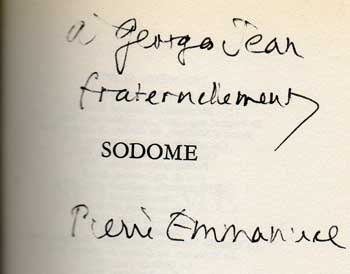 à Georges Jean
fraternellement
SODOME
Pierre Emmanuel